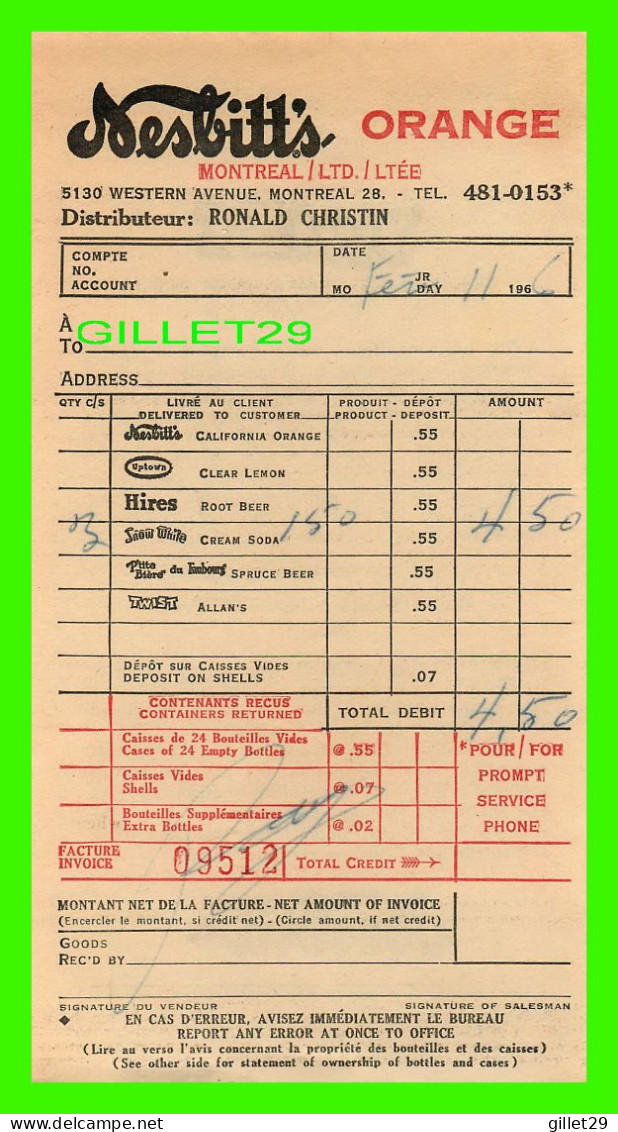 Nesbitt's ORANGE
MONTREAL / LTD. / LTÉE
5130 WESTERN AVENUE, MONTREAL 28. - TEL. 481-0153*
Distributeur: RONALD CHRISTIN
COMPTE NO. ACCOUNT
DATE
JR
MO DAY 11 1966
À
GILLET29
TO
ADDRESS
QTY C/S LIVRÉ AU CLIENT PRODUIT - DÉPÔT AMOUNT
DELIVERED TO CUSTOMER PRODUCT - DEPOSIT
Nesbitt's CALIFORNIA ORANGE .55
Uptown CLEAR LEMON .55
Hires ROOT BEER .55
3 Snow White CREAM SODA 150 .55 4 50
P'tite Bière du Faubourg SPRUCE BEER .55
TWIST ALLAN'S .55
DÉPÔT SUR CAISSES VIDES
DEPOSIT ON SHELLS .07
CONTENANTS RECUS
CONTAINERS RETURNED TOTAL DEBIT 4,50
Caisses de 24 Bouteilles Vides
Cases of 24 Empty Bottles @ .55
Caisses Vides
Shells @ .07
Bouteilles Supplémentaires
Extra Bottles @ .02
*POUR / FOR
PROMPT
SERVICE
PHONE
FACTURE
INVOICE 09512 TOTAL CREDIT
MONTANT NET DE LA FACTURE - NET AMOUNT OF INVOICE
(Encercler le montant, si crédit net) - (Circle amount, if net credit)
GOODS
REC'D BY
SIGNATURE DU VENDEUR SIGNATURE OF SALESMAN
◆ EN CAS D'ERREUR, AVISEZ IMMÉDIATEMENT LE BUREAU
REPORT ANY ERROR AT ONCE TO OFFICE
(Lire au verso l'avis concernant la propriété des bouteilles et des caisses)
(See other side for statement of ownership of bottles and cases)
delcampe.net
gillet29